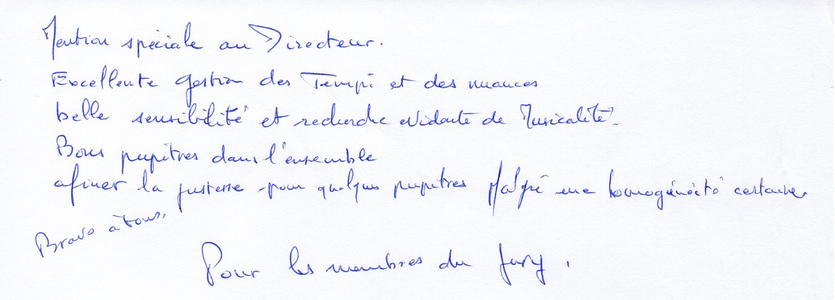 Mention spéciale au Directeur.
Excellente gestion des Tempi et des nuances
belle sensibilité et recherche évidente de Musicalité.
Bons pupitres dans l'ensemble
afiner la justesse pour quelques pupitres Malgré une homogénéité certaine.
Bravo à tous.
Pour les membres du Jury.